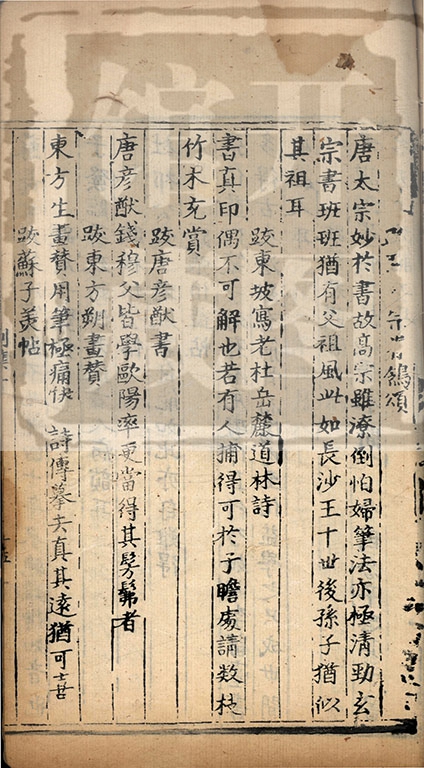 頌
唐太宗妙於書故高宗雖潦倒怕婦筆法亦極清勁玄
宗書班班猶有父祖風此如長沙王十世後孫子猶似
其祖耳
跋東坡寫老杜岳麓道林詩
書真印偶不可解也若有人捕得可於子瞻處請数枝
竹木充賞
跋唐彦猷書
唐彦猷錢穆父皆學歐陽率更當得其髣髴者
跋東方朔畫贊
東方生畫贊用筆極痛快詩傳摹失真其遠猶可喜
跋蘇子美帖